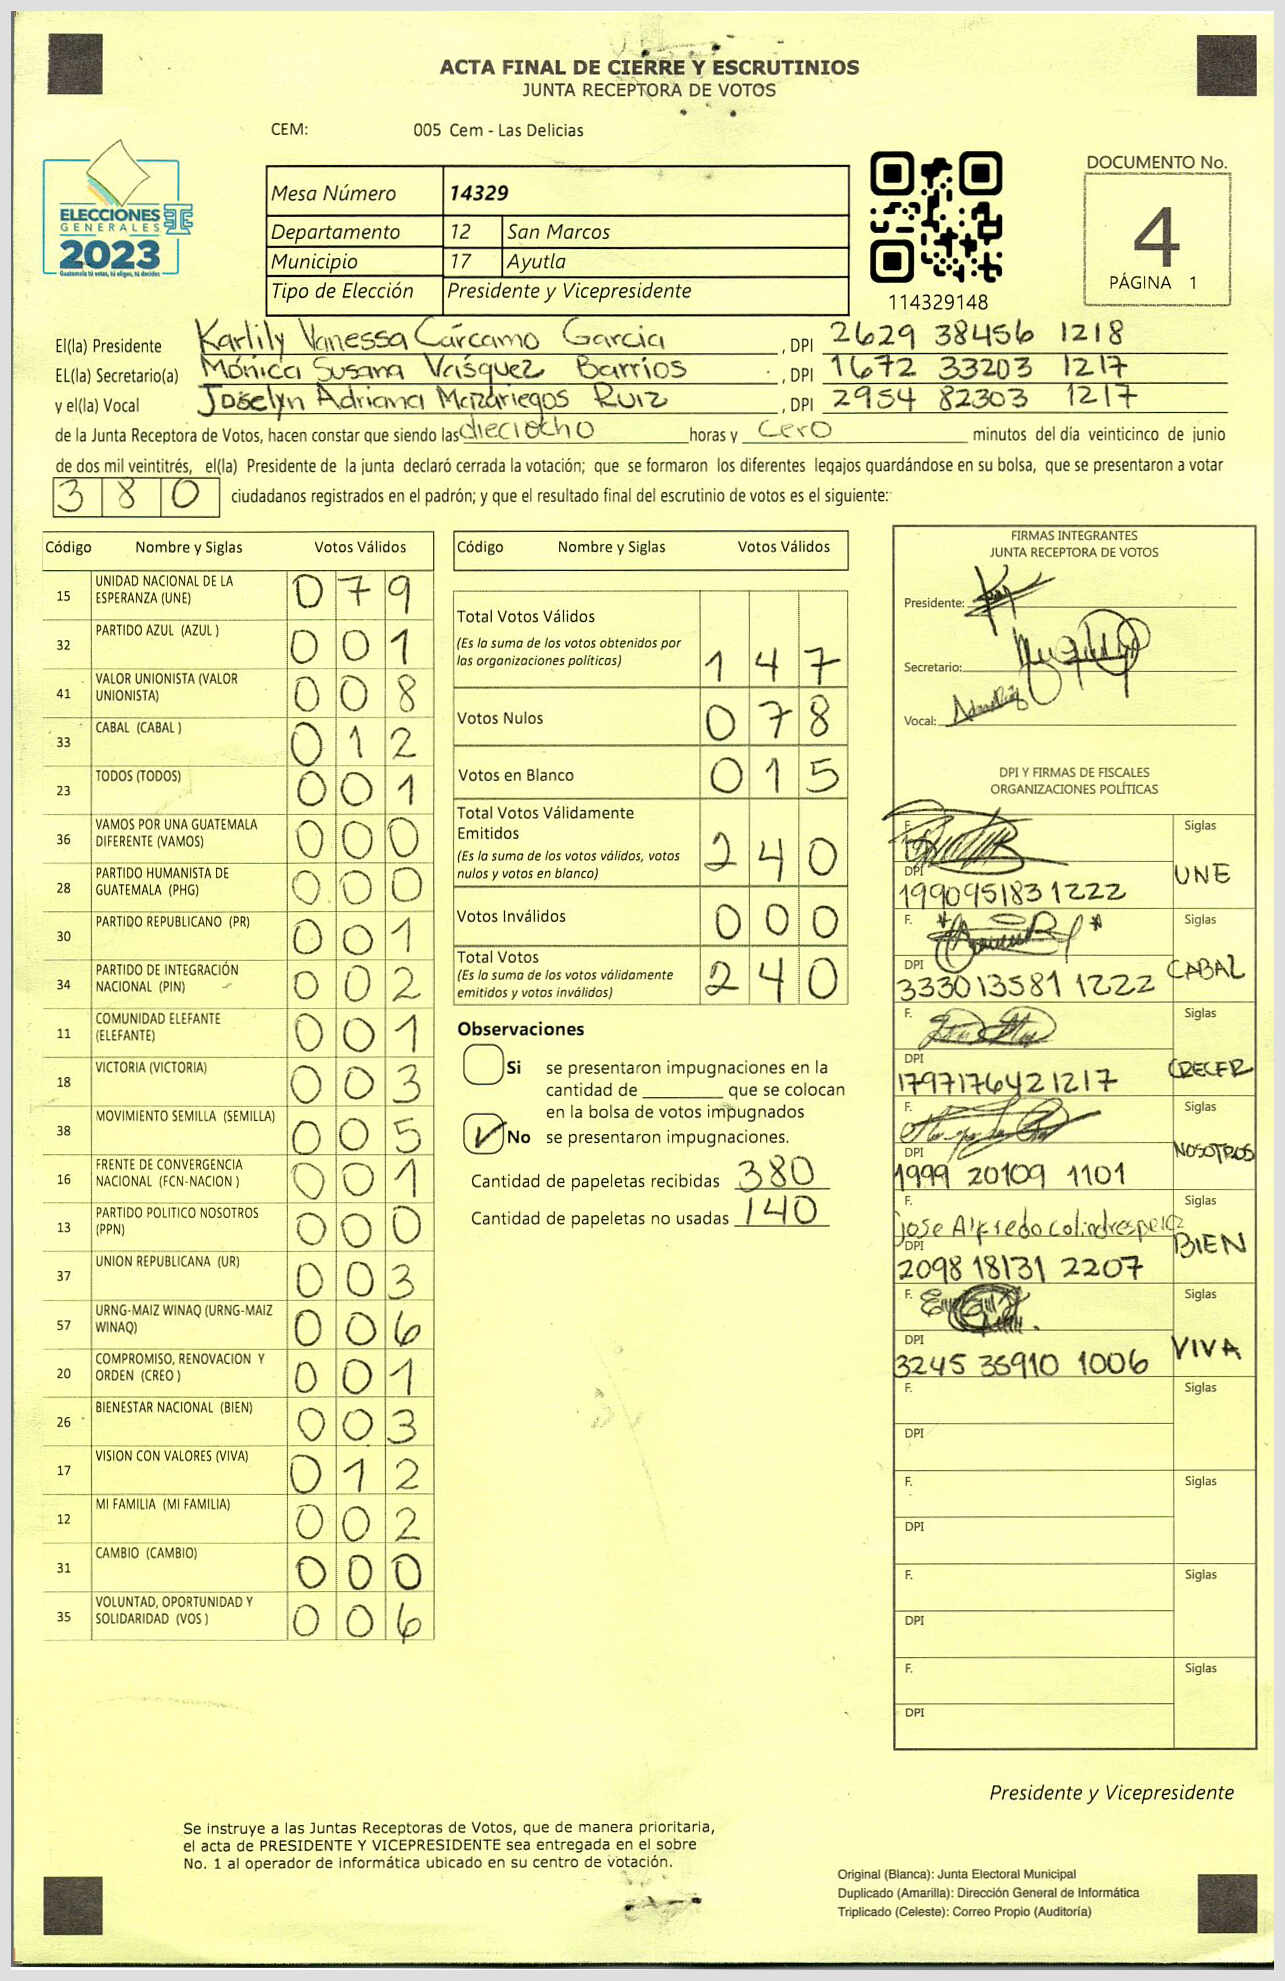 ACTA FINAL DE CIERRE Y ESCRUTINIOS
JUNTA RECEPTORA DE VOTOS
CEM: 005 Cem - Las Delicias
ELECCIONES
GENERALES
2023
Guatemala tú votas, tú eliges, tú decides
Mesa Número 14329
Departamento 12 San Marcos
Municipio 17 Ayutla
Tipo de Elección Presidente y Vicepresidente
114329148
DOCUMENTO No.
4
PÁGINA 1
El(la) Presidente Karlily Vanessa Cárcamo Garcia , DPI 2629 38456 1218
EL(la) Secretario(a) Mónica Susana Vásquez Barrios , DPI 1672 33203 1217
y el(la) Vocal Joselyn Adriana Mazariegos Ruiz , DPI 2954 82303 1217
de la Junta Receptora de Votos, hacen constar que siendo las dieciocho horas y cero minutos del día veinticinco de junio
de dos mil veintitrés, el(la) Presidente de la junta declaró cerrada la votación; que se formaron los diferentes legajos guardándose en su bolsa, que se presentaron a votar
380 ciudadanos registrados en el padrón; y que el resultado final del escrutinio de votos es el siguiente:
Código Nombre y Siglas Votos Válidos
15 UNIDAD NACIONAL DE LA ESPERANZA (UNE) 079
32 PARTIDO AZUL (AZUL ) 001
41 VALOR UNIONISTA (VALOR UNIONISTA) 008
33 CABAL (CABAL ) 012
23 TODOS (TODOS) 001
36 VAMOS POR UNA GUATEMALA DIFERENTE (VAMOS) 000
28 PARTIDO HUMANISTA DE GUATEMALA (PHG) 000
30 PARTIDO REPUBLICANO (PR) 001
34 PARTIDO DE INTEGRACIÓN NACIONAL (PIN) 002
11 COMUNIDAD ELEFANTE (ELEFANTE) 001
18 VICTORIA (VICTORIA) 003
38 MOVIMIENTO SEMILLA (SEMILLA) 005
16 FRENTE DE CONVERGENCIA NACIONAL (FCN-NACION ) 001
13 PARTIDO POLITICO NOSOTROS (PPN) 000
37 UNION REPUBLICANA (UR) 003
57 URNG-MAIZ WINAQ (URNG-MAIZ WINAQ) 006
20 COMPROMISO, RENOVACION Y ORDEN (CREO ) 001
26 BIENESTAR NACIONAL (BIEN) 003
17 VISION CON VALORES (VIVA) 012
12 MI FAMILIA (MI FAMILIA) 002
31 CAMBIO (CAMBIO) 000
35 VOLUNTAD, OPORTUNIDAD Y SOLIDARIDAD (VOS ) 006
Código Nombre y Siglas Votos Válidos
Total Votos Válidos
(Es la suma de los votos obtenidos por
las organizaciones políticas) 147
Votos Nulos 078
Votos en Blanco 015
Total Votos Válidamente
Emitidos
(Es la suma de los votos válidos, votos
nulos y votos en blanco) 240
Votos Inválidos 000
Total Votos
(Es la suma de los votos válidamente
emitidos y votos inválidos) 240
Observaciones
Si se presentaron impugnaciones en la
cantidad de ________ que se colocan
en la bolsa de votos impugnados
No se presentaron impugnaciones.
Cantidad de papeletas recibidas 380
Cantidad de papeletas no usadas 140
FIRMAS INTEGRANTES
JUNTA RECEPTORA DE VOTOS
Presidente:
Secretario:
Vocal:
DPI Y FIRMAS DE FISCALES
ORGANIZACIONES POLÍTICAS
F. Siglas
DPI UNE
1990951831222
F. Siglas
DPI CABAL
333013581 1222
F. Siglas
DPI CRECER
1797176421217
F. Siglas
DPI NOSOTROS
1999 20109 1101
F. Jose Alfredo Siglas
DPI BIEN
2098 18131 2207
F. Siglas
DPI VIVA
3245 36910 1006
F. Siglas
DPI
F. Siglas
DPI
F. Siglas
DPI
F. Siglas
DPI
Presidente y Vicepresidente
Se instruye a las Juntas Receptoras de Votos, que de manera prioritaria,
el acta de PRESIDENTE Y VICEPRESIDENTE sea entregada en el sobre
No. 1 al operador de informática ubicado en su centro de votación.
Original (Blanca): Junta Electoral Municipal
Duplicado (Amarilla): Dirección General de Informática
Triplicado (Celeste): Correo Propio (Auditoría)